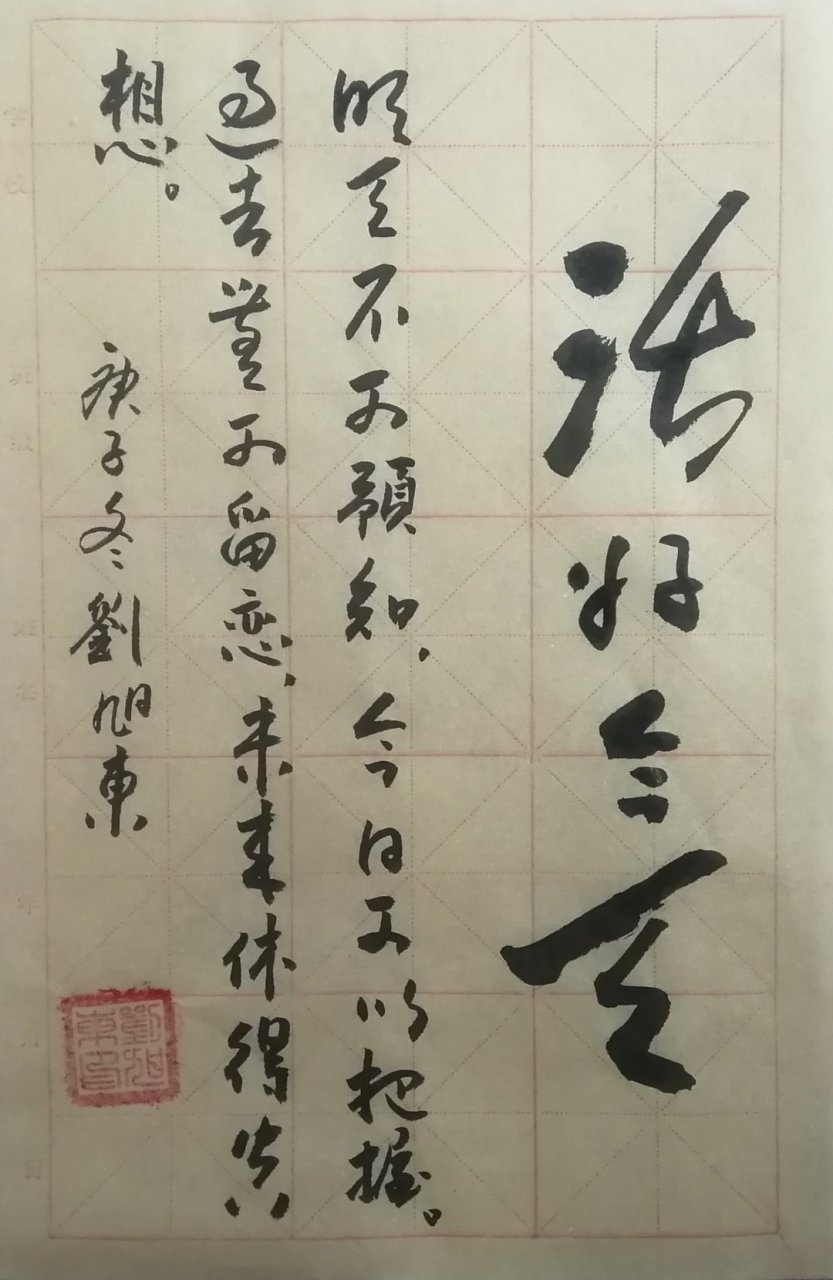 活好今天
明天不可預知、今日可以把握。
過去無可留恋、未来休得
想。
庚子冬劉旭東
劉旭東印